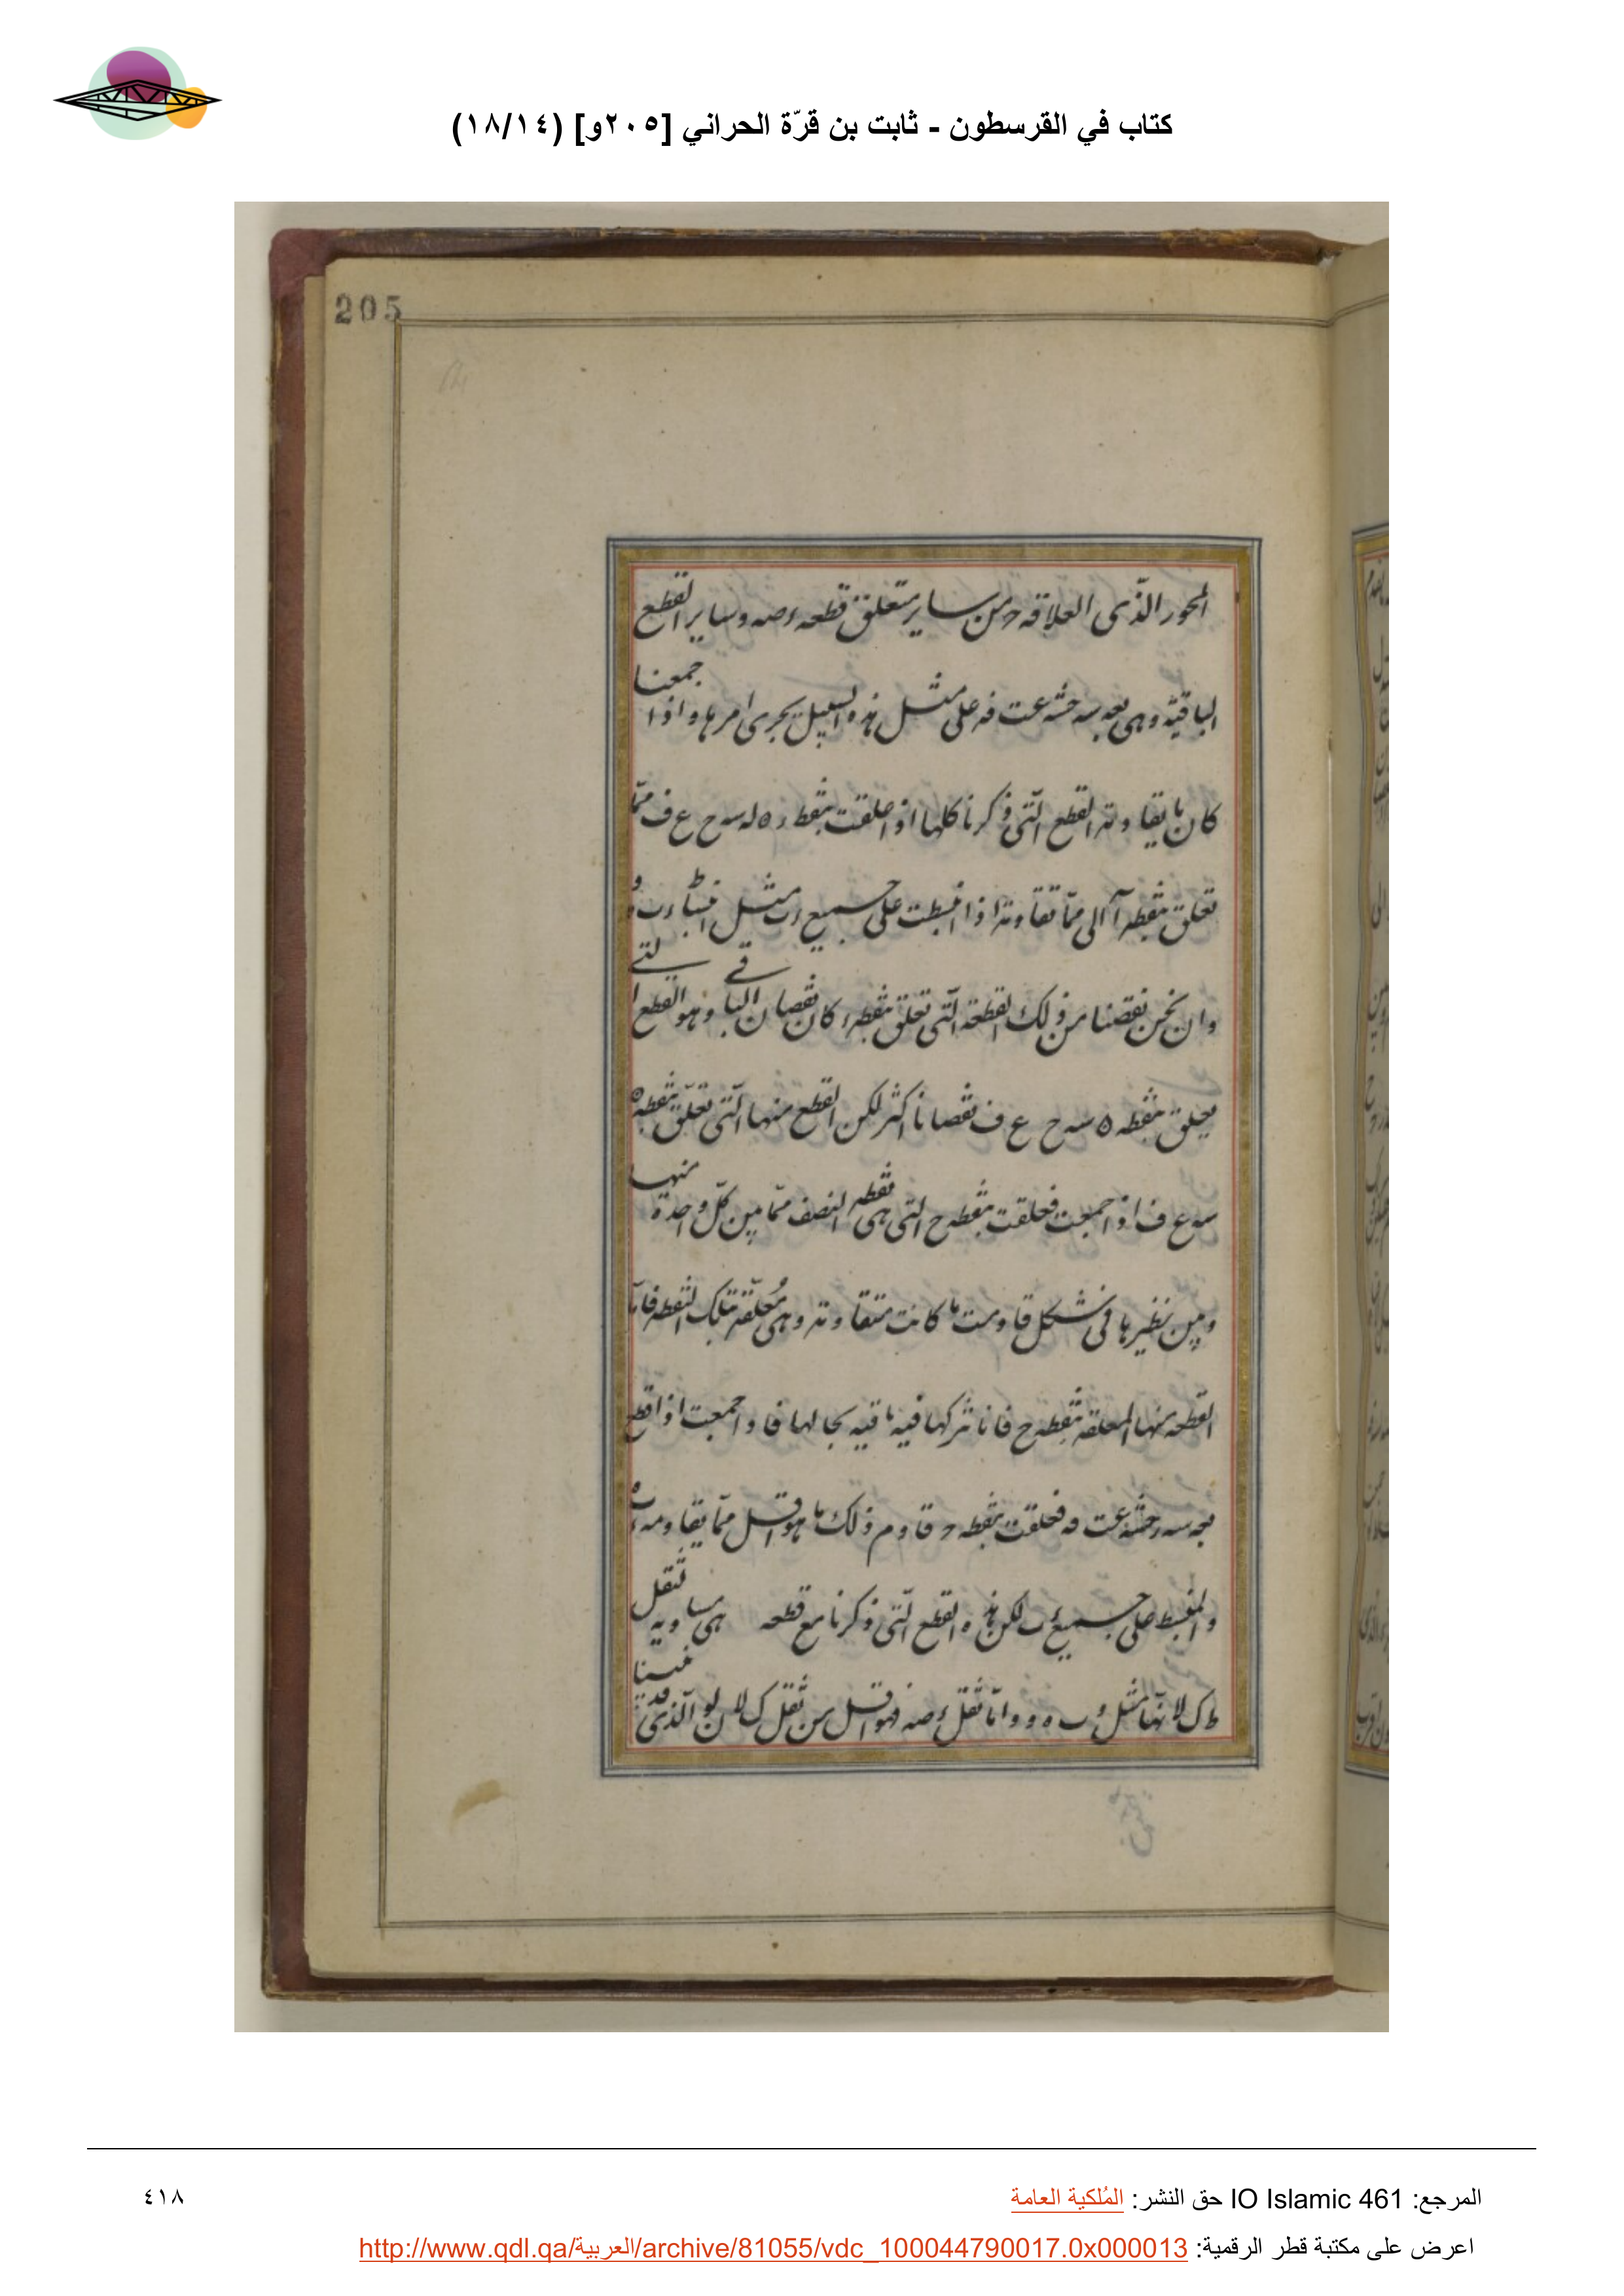 كتاب في القرسطون - ثابت بن قرّة الحراني [٢٠٥و] (١٨/١٤)
205
المحور الذّى العلاقه حـ من ساير متعلق قطعه ءصه وساير القطع
الباقيّه وهى على مثل هذه السبيل يجرى امرها واذا جمعنا
كان ما يقاوته القطع الّتى ذكرنا كلها اذا علقت بنقطه ه له سه ح ع ف ممّا
تعلق بنقطه آ الى ممّا تقاوته اذا انبسطت على جميع ءب مثل انبساء ءب و
وان نحن نقصنا من ذلك القطعه الّتى تعلق بنقطه ء كان نقصان الباقے وهو القطع التے
يعلق بنقطه ه سه ح ع ف نقصانا اكثر لكن القطع منها الّتى تعلّق بنقطه ه
سه ع ف اذا جمعت فعلقت بنقطه ح التى هى نقطه النصف ممّا بين كلّ واحدة منها
وبين نظيرها فى شكل قاومت ما كانت متقاوته وهى مُعلّقه بتلك النقطه فامّا
القطعه منها المعلقه بنقطه ح فانا نتركها فيه باقيه بحالها فاذا جمعت اذا قطع
فعلقت بنقطه ح قاوم ذلك ما هو اقل ممّا يقاومه ءب
والمنبسط على جميع ءب لكن هذه القطع الّتى ذكرنا مع قطعه هى مساويه لثقل
ط ك لانّها مثل وب ه و وامّا ثقل ءصه فهو اقل من ثقل ك لا ن لو الّذى قد بينا
المرجع: IO Islamic 461 حق النشر: المُلكية العامة
٤١٨
اعرض على مكتبة قطر الرقمية: http://www.qdl.qa/العربية/archive/81055/vdc_100044790017.0x000013